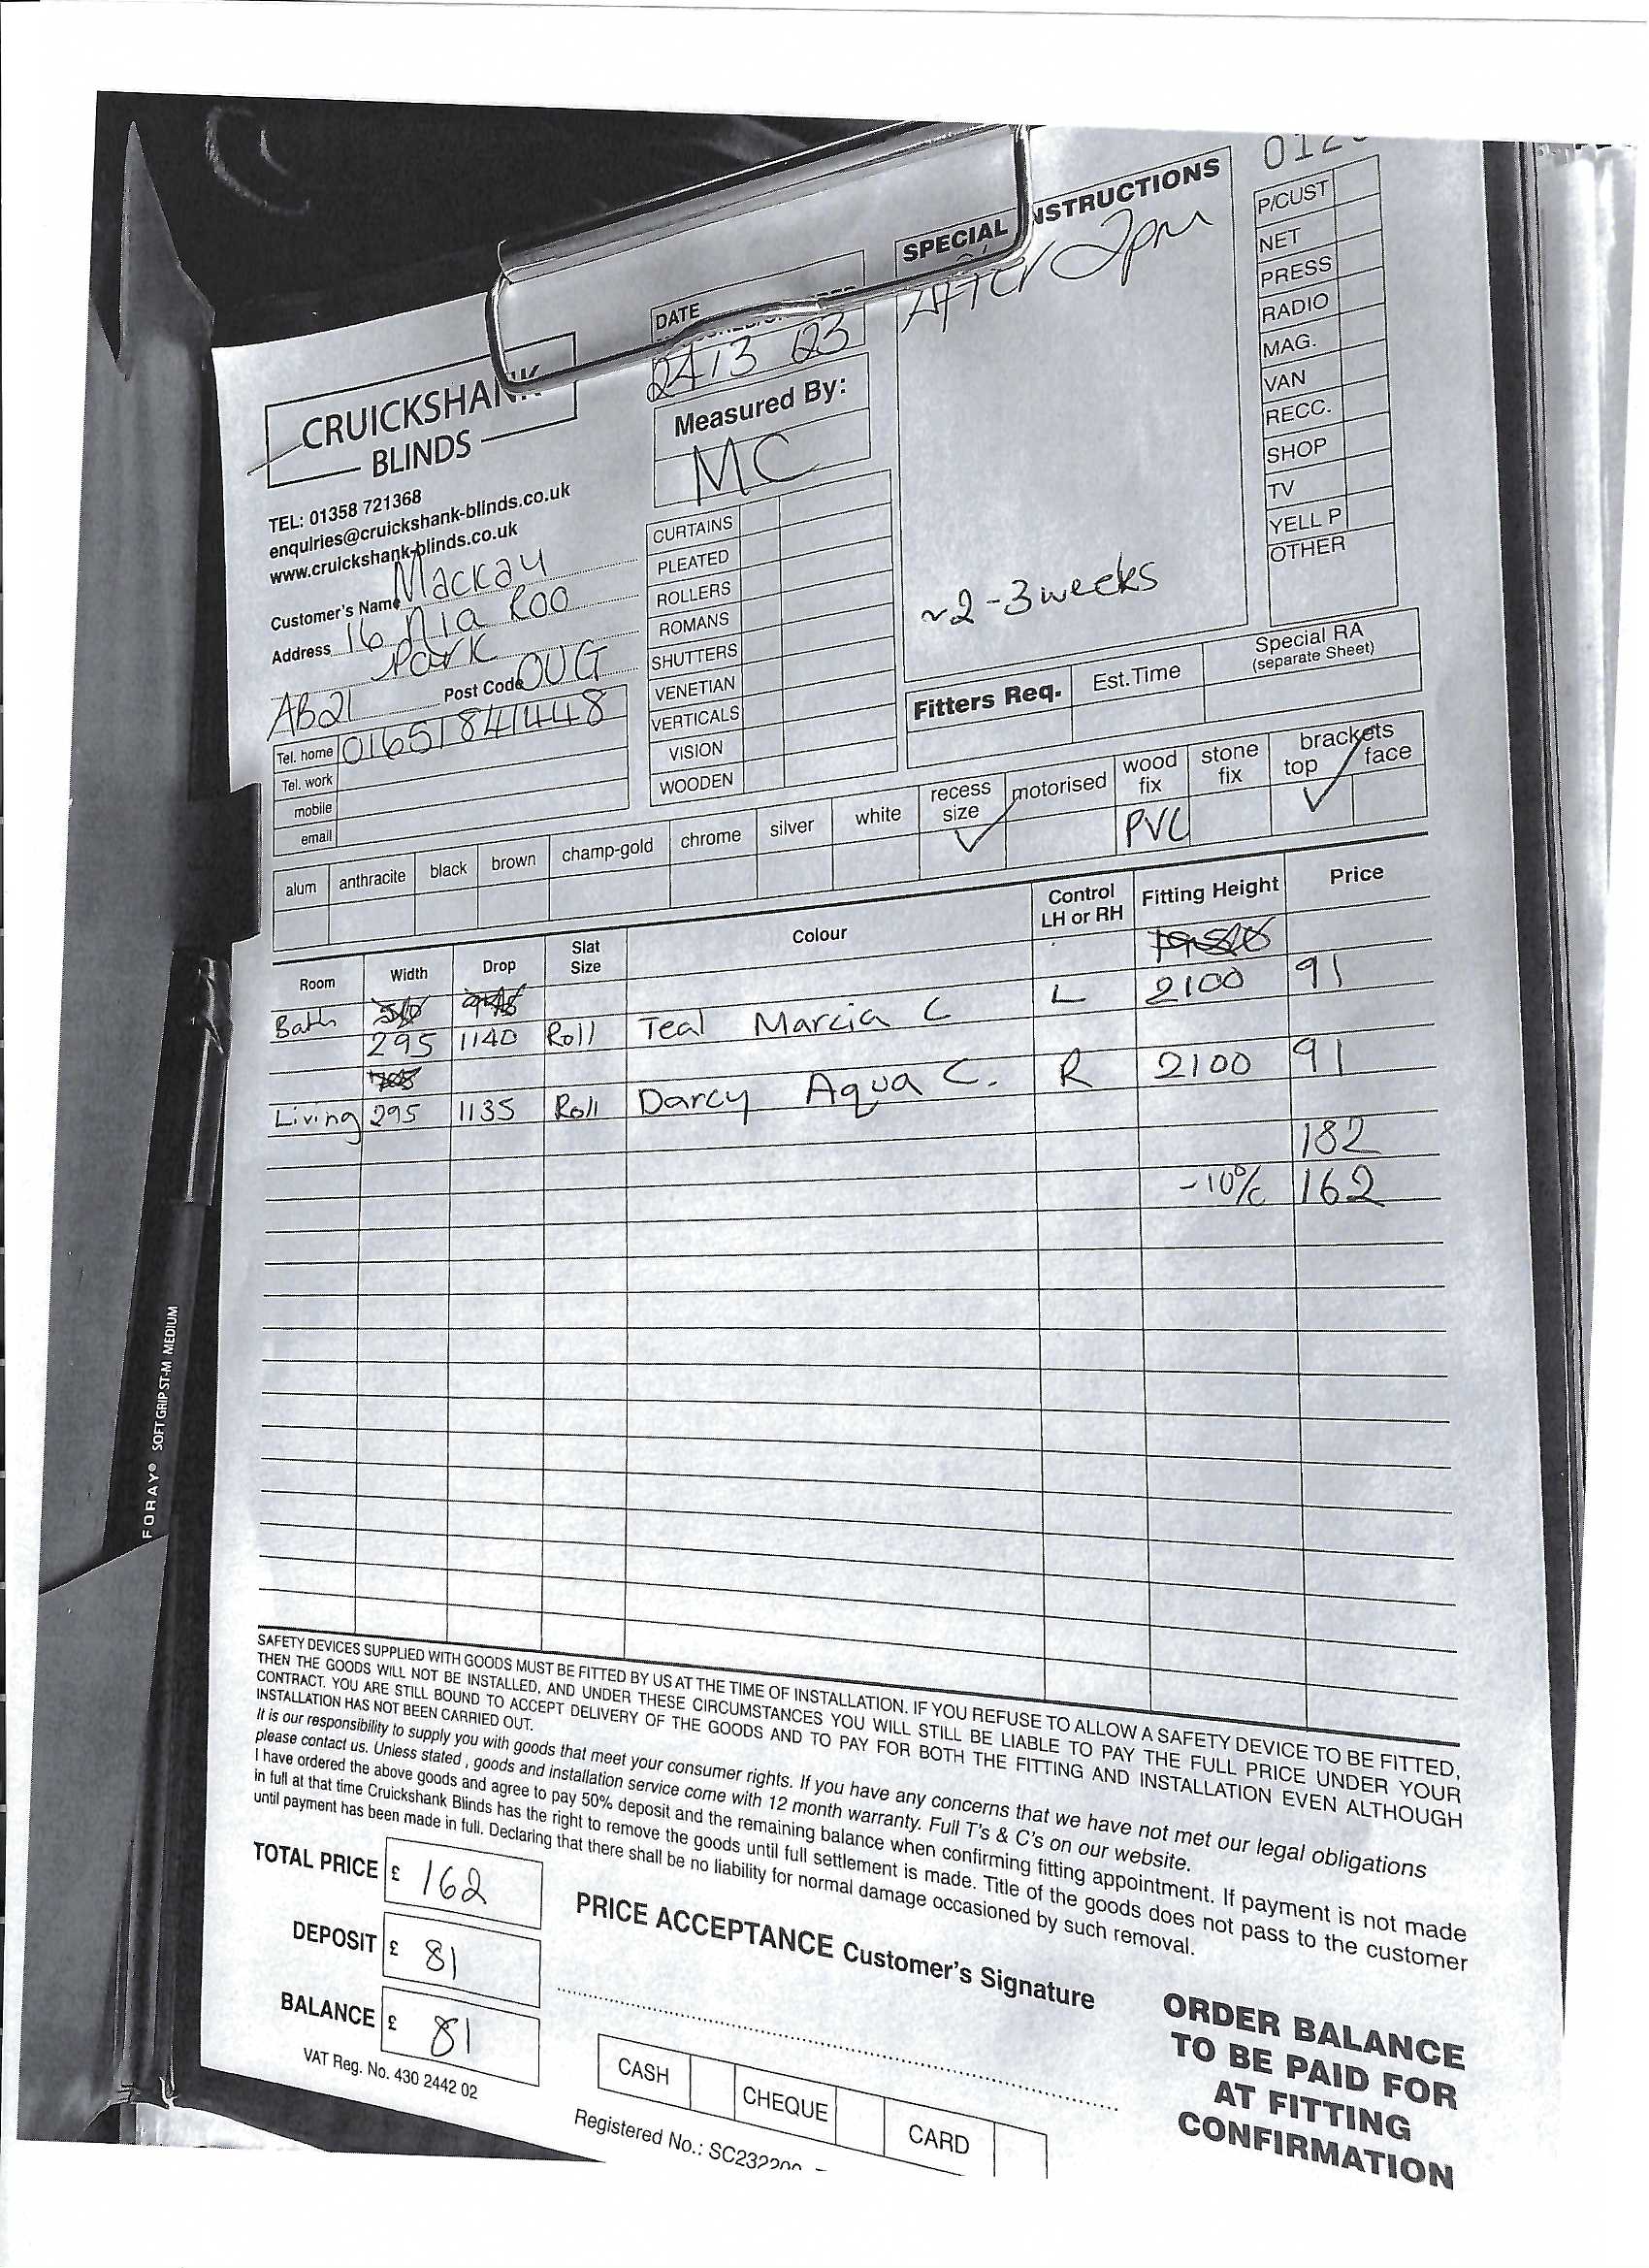 012
SPECIAL INSTRUCTIONS
After 2pm
~2-3 weeks
P/CUST
NET
PRESS
RADIO
MAG.
VAN
RECC.
SHOP
TV
YELL P
OTHER
CRUICKSHANK
BLINDS
TEL: 01358 721368
enquiries@cruickshank-blinds.co.uk
www.cruickshank-blinds.co.uk
Customer's Name Mackay
Address 16
Park
AB21 Post Code 0UG
Tel. home 01651841448
Tel. work
mobile
email
DATE
24/3 23
Measured By:
MC
CURTAINS
PLEATED
ROLLERS
ROMANS
SHUTTERS
VENETIAN
VERTICALS
VISION
WOODEN
Fitters Req. Est. Time Special RA
(separate Sheet)
alum anthracite black brown champ-gold chrome silver white recess size motorised wood fix stone fix brackets top face
✓ PVC ✓
Room Width Drop Slat Size Colour Control LH or RH Fitting Height Price
Bath 295 1140 Roll Teal Marcia C L 2100 91
Living 295 1135 Roll Darcy Aqua C. R 2100 91
182
-10% 162
SAFETY DEVICES SUPPLIED WITH GOODS MUST BE FITTED BY US AT THE TIME OF INSTALLATION. IF YOU REFUSE TO ALLOW A SAFETY DEVICE TO BE FITTED,
THEN THE GOODS WILL NOT BE INSTALLED, AND UNDER THESE CIRCUMSTANCES YOU WILL STILL BE LIABLE TO PAY THE FULL PRICE UNDER YOUR
CONTRACT. YOU ARE STILL BOUND TO ACCEPT DELIVERY OF THE GOODS AND TO PAY FOR BOTH THE FITTING AND INSTALLATION EVEN ALTHOUGH
INSTALLATION HAS NOT BEEN CARRIED OUT.
It is our responsibility to supply you with goods that meet your consumer rights. If you have any concerns that we have not met our legal obligations
please contact us. Unless stated , goods and installation service come with 12 month warranty. Full T's & C's on our website.
I have ordered the above goods and agree to pay 50% deposit and the remaining balance when confirming fitting appointment. If payment is not made
in full at that time Cruickshank Blinds has the right to remove the goods until full settlement is made. Title of the goods does not pass to the customer
until payment has been made in full. Declaring that there shall be no liability for normal damage occasioned by such removal.
TOTAL PRICE £ 162
DEPOSIT £ 81
BALANCE £ 81
VAT Reg. No. 430 2442 02
PRICE ACCEPTANCE Customer's Signature
CASH CHEQUE CARD
Registered No.: SC232200
ORDER BALANCE
TO BE PAID FOR
AT FITTING
CONFIRMATION
FORAY® SOFT GRIP ST-M MEDIUM